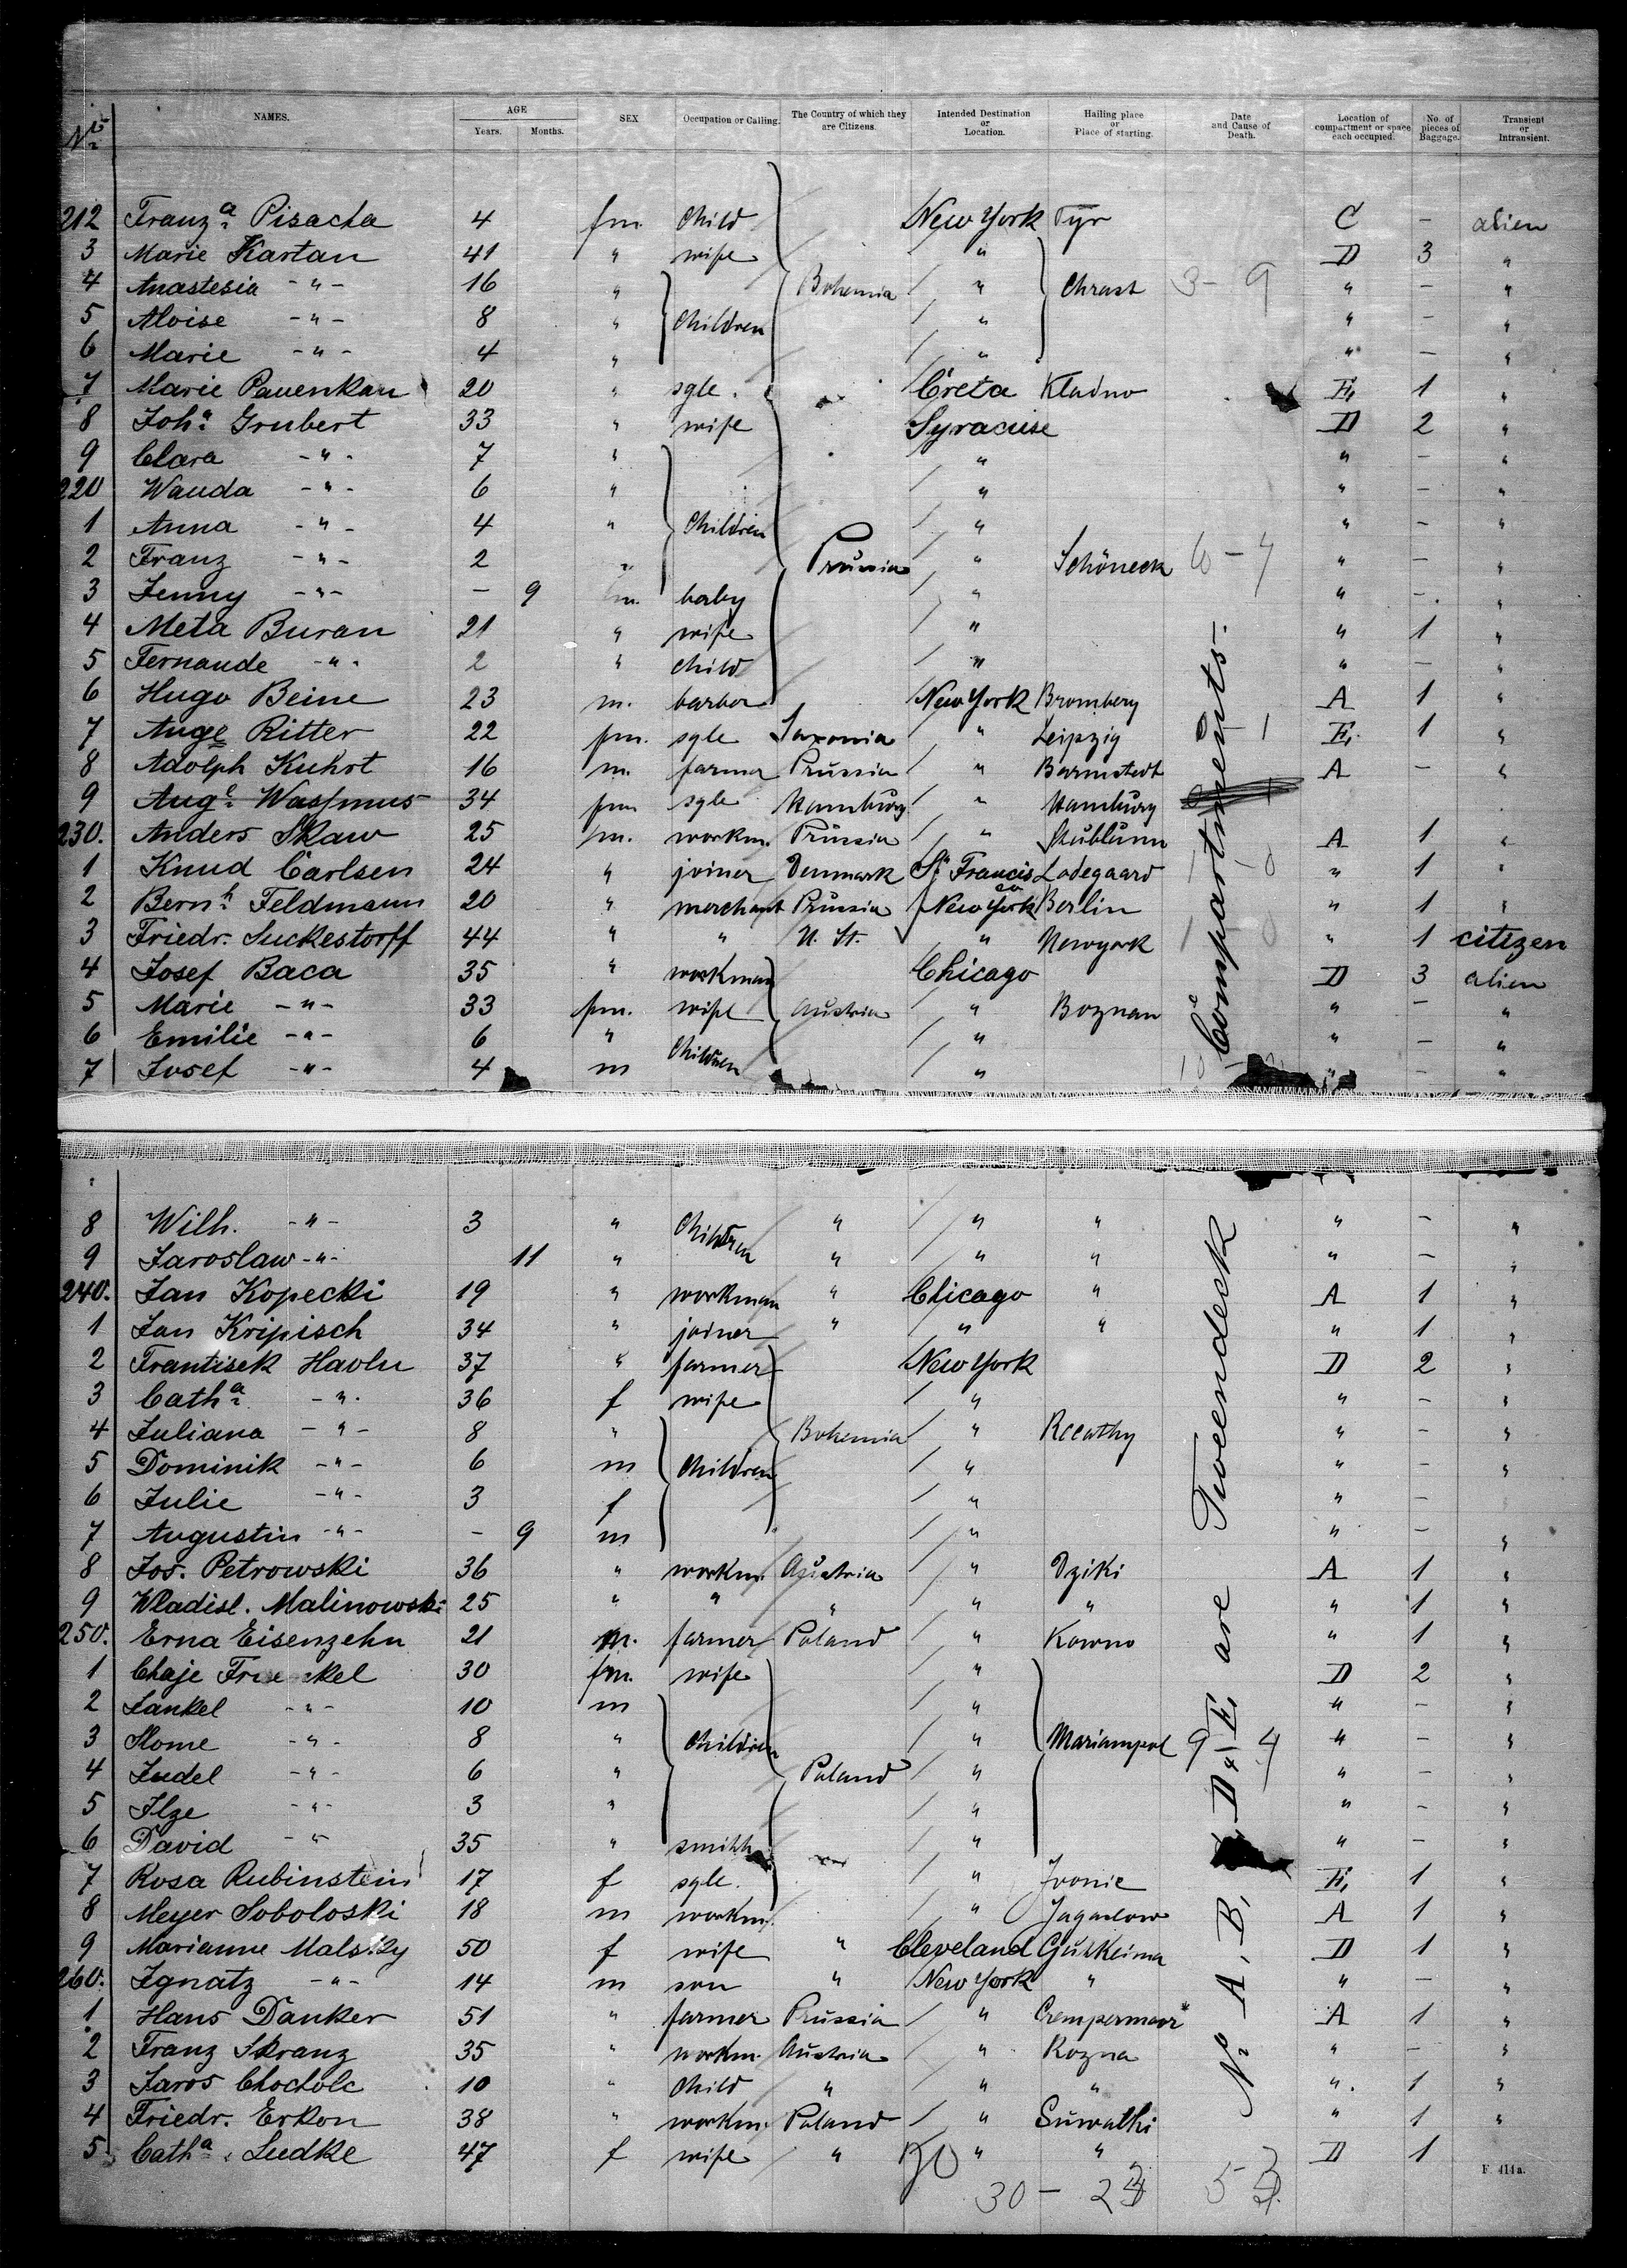 No. NAMES. AGE Years. Months. SEX Occupation or Calling. The Country of which they are Citizens. Intended Destination or Location. Hailing place or Place of starting. Date and Cause of Death. Location of compartment or space each occupied. No. of pieces of Baggage. Transient or Intransient.
212 Franz.a Pisacka 4 fm. Child New York Tyr C - alien
3 Marie Kartan 41 " wife " D 3 "
4 Anastesia -"- 16 " Bohemia " Chrast 3- 9 " - "
5 Aloise -"- 8 " Children " " - "
6 Marie -"- 4 " " " - "
7 Marie Pauenkau 20 " sgle. Creta Kladno E, 1 "
8 Joh.a Grubert 33 " wife Syracuse D 2 "
9 Clara -"- 7 " " " - "
220 Wanda -"- 6 " " " - "
1 Anna -"- 4 " Children " " - "
2 Franz -"- 2 " Prussia " Schöneck 6-7 " - "
3 Jenny -"- - 9 fm. baby " " - "
4 Meta Buran 21 " wife " " 1 "
5 Fernande -"- 2 " child " " - "
6 Hugo Beine 23 m. barber New York Bromberg A 1 "
7 Auge Ritter 22 fm. sgle Saxonia " Leipzig 1 E, 1 "
8 Adolph Kuhrt 16 m. farmer Prussia " Barmstedt A - "
9 Aug.e Wassmus 34 fm sgle Hamburg " Hamburg
230. Anders Skaw 25 m. workm. Prussia " Skublum A 1 "
1 Knud Carlsen 24 " joiner Denmark St Francisco Ladegaard " 1 "
2 Bern.h Feldmann 20 " merchant Prussia New York Berlin " 1 "
3 Friedr. Suckestorff 44 " " U. St. " Newyork 1 0 " 1 citizen
4 Josef Baca 35 " workman Chicago D 3 alien
5 Marie -"- 33 fm. wife Austria " Boznan " - "
6 Emilie -"- 6 " Children " " - "
7 Josef -"- 4 m " " - "
8 Wilh. -"- 3 " Children " " " " - "
9 Jaroslaw -"- 11 " " " " " - "
240. Jan Kopecki 19 " workman " Chicago " A 1 "
1 Jan Kripisch 34 " joiner " " " " 1 "
2 Frantisek Havlu 37 " farmer New York D 2 "
3 Cath.a -"- 36 f wife " " - "
4 Juliana -"- 8 " Bohemia " " - "
5 Dominik -"- 6 m Children " " - "
6 Julie -"- 3 f " " -
7 Augustin -"- - 9 m " " - "
8 Jos. Petrowski 36 " workm. Austria " Dziki A 1 "
9 Wladisl. Malinowski 25 " " " " " " 1 "
250. Erna Eisenzehn 21 m. farmer Poland " Kowno " 1 "
1 Chaje 30 fm. wife " D 2 "
2 Jankel -"- 10 m " " - "
3 Slome -"- 8 " Children " Mariampol 9 4 " - "
4 Judel -"- 6 " Poland " " - "
5 Ilze -"- 3 " " " - "
6 David -"- 35 " smith " " - "
7 Rosa Rubinstein 17 f sgle. " Ivonie E, 1 "
8 Meyer Soboloski 18 m workm. " A 1 "
9 Marianne Malsky 50 f wife " Cleveland D 1 "
260. Ignatz -"- 14 m son " New York " " - "
1 Hans Danker 51 " farmer Prussia " Crempermoor A 1 "
2 Franz Skranz 35 " workm. Austria " Rozna " - "
3 Jaros Chocholc 10 " Child " " " " 1 "
4 Friedr. Erkon 38 " workm. Poland " Suwalki " 1 "
5 Cath.a Ludke 47 f wife " " " D 1 "
30 -
F. 414a.
No A, B, D & E, are Tweendeck Compartments.